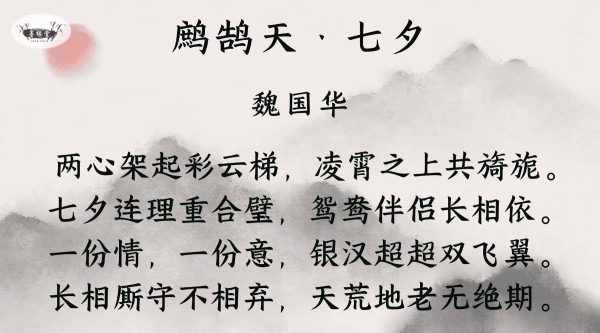 鹧鸪天·七夕
魏国华
两心架起彩云梯，凌霄之上共旖旎。
七夕连理重合璧，鸳鸯伴侣长相依。
一份情，一份意，银汉超超双飞翼。
长相厮守不相弃，天荒地老无绝期。